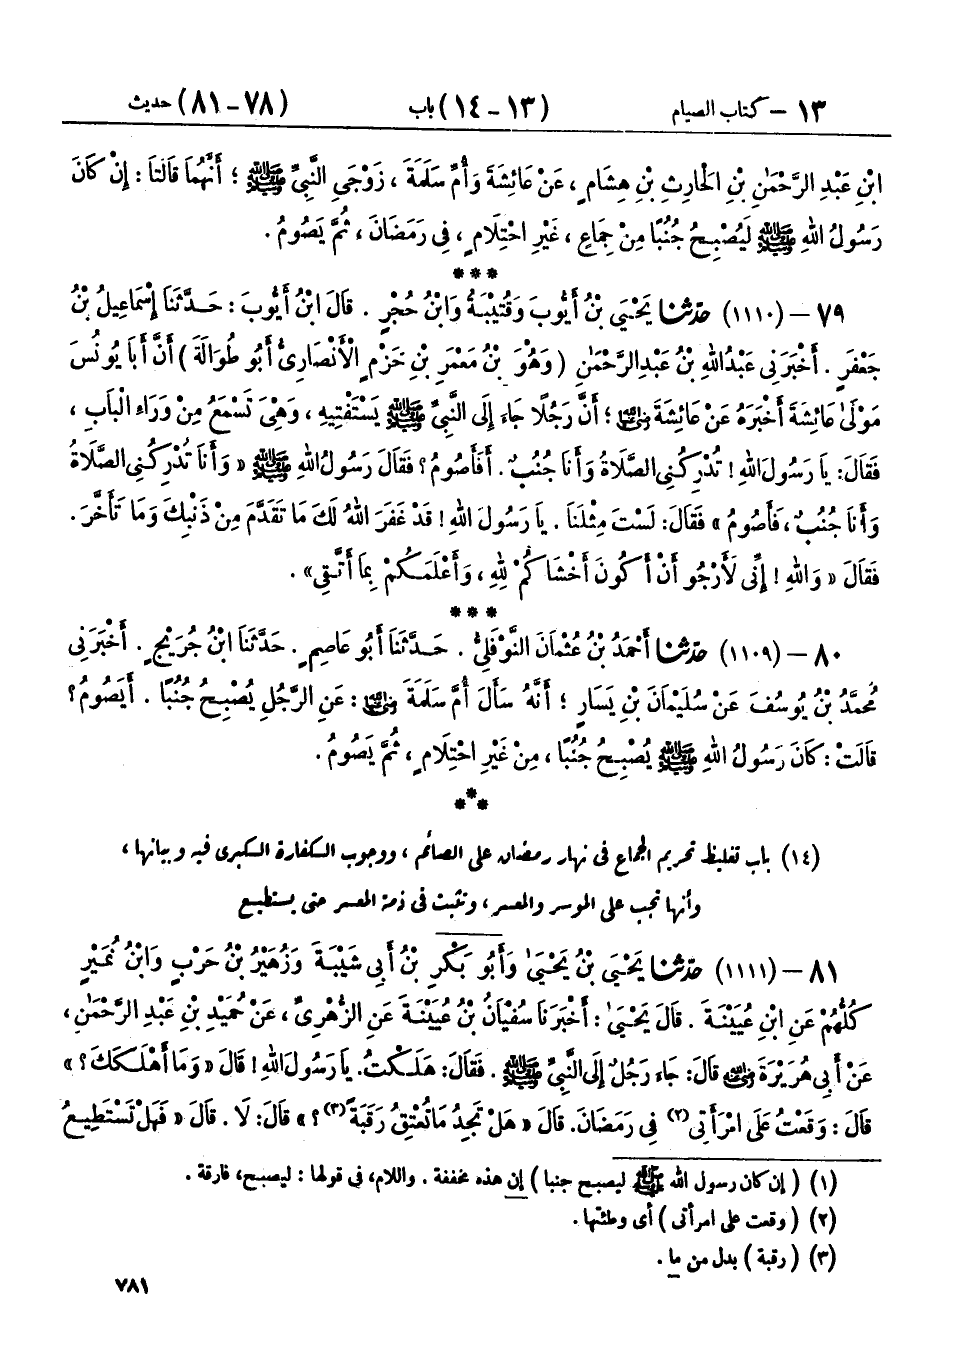 ١٣ – كتاب الصيام (١٣ - ١٤) باب (٧٨ - ٨١) حديث
ابْنِ عَبْدِ الرَّحْمٰنِ بْنِ الْحَارِثِ بْنِ هِشَامٍ ، عَنْ عَائِشَةَ وَأُمِّ سَلَمَةَ ، زَوْجَيِ النَّبِيِّ ﷺ ؛ أَنَّهُمَا قَالَتَا : إِنْ كَانَ
رَسُولُ اللهِ ﷺ لَيُصْبِحُ جُنُبًا مِنْ جِمَاعٍ ، غَيْرِ احْتِلَامٍ ، فِي رَمَضَانَ ، ثُمَّ يَصُومُ .
***
٧٩ – (١١١٠) حدثنا يَحْيَى بْنُ أَيُّوبَ وَقُتَيْبَةُ وَابْنُ حُجْرٍ . قَالَ ابْنُ أَيُّوبَ : حَدَّثَنَا إِسْمَاعِيلُ بْنُ
جَعْفَرٍ . أَخْبَرَنِي عَبْدُ اللهِ بْنُ عَبْدِ الرَّحْمٰنِ ( وَهُوَ بْنُ مَعْمَرِ بْنِ حَزْمٍ الْأَنْصَارِيُّ أَبُو طُوَالَةَ ) أَنَّ أَبَا يُونُسَ
مَوْلَىٰ عَائِشَةَ أَخْبَرَهُ عَنْ عَائِشَةَ رضي الله عنها ؛ أَنَّ رَجُلًا جَاءَ إِلَى النَّبِيِّ ﷺ يَسْتَفْتِيهِ ، وَهِيَ تَسْمَعُ مِنْ وَرَاءِ الْبَابِ ،
فَقَالَ : يَا رَسُولَ اللهِ ! تُدْرِكُنِي الصَّلَاةُ وَأَنَا جُنُبٌ . أَفَأَصُومُ ؟ فَقَالَ رَسُولُ اللهِ ﷺ « وَأَنَا تُدْرِكُنِي الصَّلَاةُ
وَأَنَا جُنُبٌ ، فَأَصُومُ » فَقَالَ : لَسْتَ مِثْلَنَا . يَا رَسُولَ اللهِ ! قَدْ غَفَرَ اللهُ لَكَ مَا تَقَدَّمَ مِنْ ذَنْبِكَ وَمَا تَأَخَّرَ .
فَقَالَ « وَاللهِ ! إِنِّي لَأَرْجُو أَنْ أَكُونَ أَخْشَاكُمْ لِلهِ ، وَأَعْلَمَكُمْ بِمَا أَتَّقِي » .
***
٨٠ – (١١٠٩) حدثنا أَحْمَدُ بْنُ عُثْمَانَ النَّوْفَلِيُّ . حَدَّثَنَا أَبُو عَاصِمٍ . حَدَّثَنَا ابْنُ جُرَيْجٍ . أَخْبَرَنِي
مُحَمَّدُ بْنُ يُوسُفَ عَنْ سُلَيْمَانَ بْنِ يَسَارٍ ؛ أَنَّهُ سَأَلَ أُمَّ سَلَمَةَ رضي الله عنها : عَنِ الرَّجُلِ يُصْبِحُ جُنُبًا . أَيَصُومُ ؟
قَالَتْ : كَانَ رَسُولُ اللهِ ﷺ يُصْبِحُ جُنُبًا ، مِنْ غَيْرِ احْتِلَامٍ ، ثُمَّ يَصُومُ .
***
(١٤) باب تغليظ تحريم الجماع في نهار رمضان على الصائم ، ووجوب الكفارة الكبرى فيه وبيانها ،
وأنها تجب على الموسر والمعسر ، وتثبت في ذمة المعسر حتى يستطيع
٨١ – (١١١١) حدثنا يَحْيَى بْنُ يَحْيَىٰ وَأَبُو بَكْرِ بْنُ أَبِي شَيْبَةَ وَزُهَيْرُ بْنُ حَرْبٍ وَابْنُ نُمَيْرٍ
كُلُّهُمْ عَنِ ابْنِ عُيَيْنَةَ . قَالَ يَحْيَىٰ : أَخْبَرَنَا سُفْيَانُ بْنُ عُيَيْنَةَ عَنِ الزُّهْرِيِّ ، عَنْ حُمَيْدِ بْنِ عَبْدِ الرَّحْمٰنِ ،
عَنْ أَبِي هُرَيْرَةَ رضي الله عنه قَالَ : جَاءَ رَجُلٌ إِلَى النَّبِيِّ ﷺ . فَقَالَ : هَلَكْتُ . يَا رَسُولَ اللهِ ! قَالَ « وَمَا أَهْلَكَكَ ؟ »
قَالَ : وَقَعْتُ عَلَى امْرَأَتِي (٢) فِي رَمَضَانَ . قَالَ « هَلْ تَجِدُ مَا تُعْتِقُ رَقَبَةً (٣) ؟ » قَالَ : لَا . قَالَ « فَهَلْ تَسْتَطِيعُ
(١) ( إن كان رسول الله ﷺ ليصبح جنبا ) إن هذه مخففة . واللام ، في قولها : ليصبح ، فارقة .
(٢) ( وقعت على امرأتي ) أي وطئتها .
(٣) ( رقبة ) بدل من ما .
٧٨١